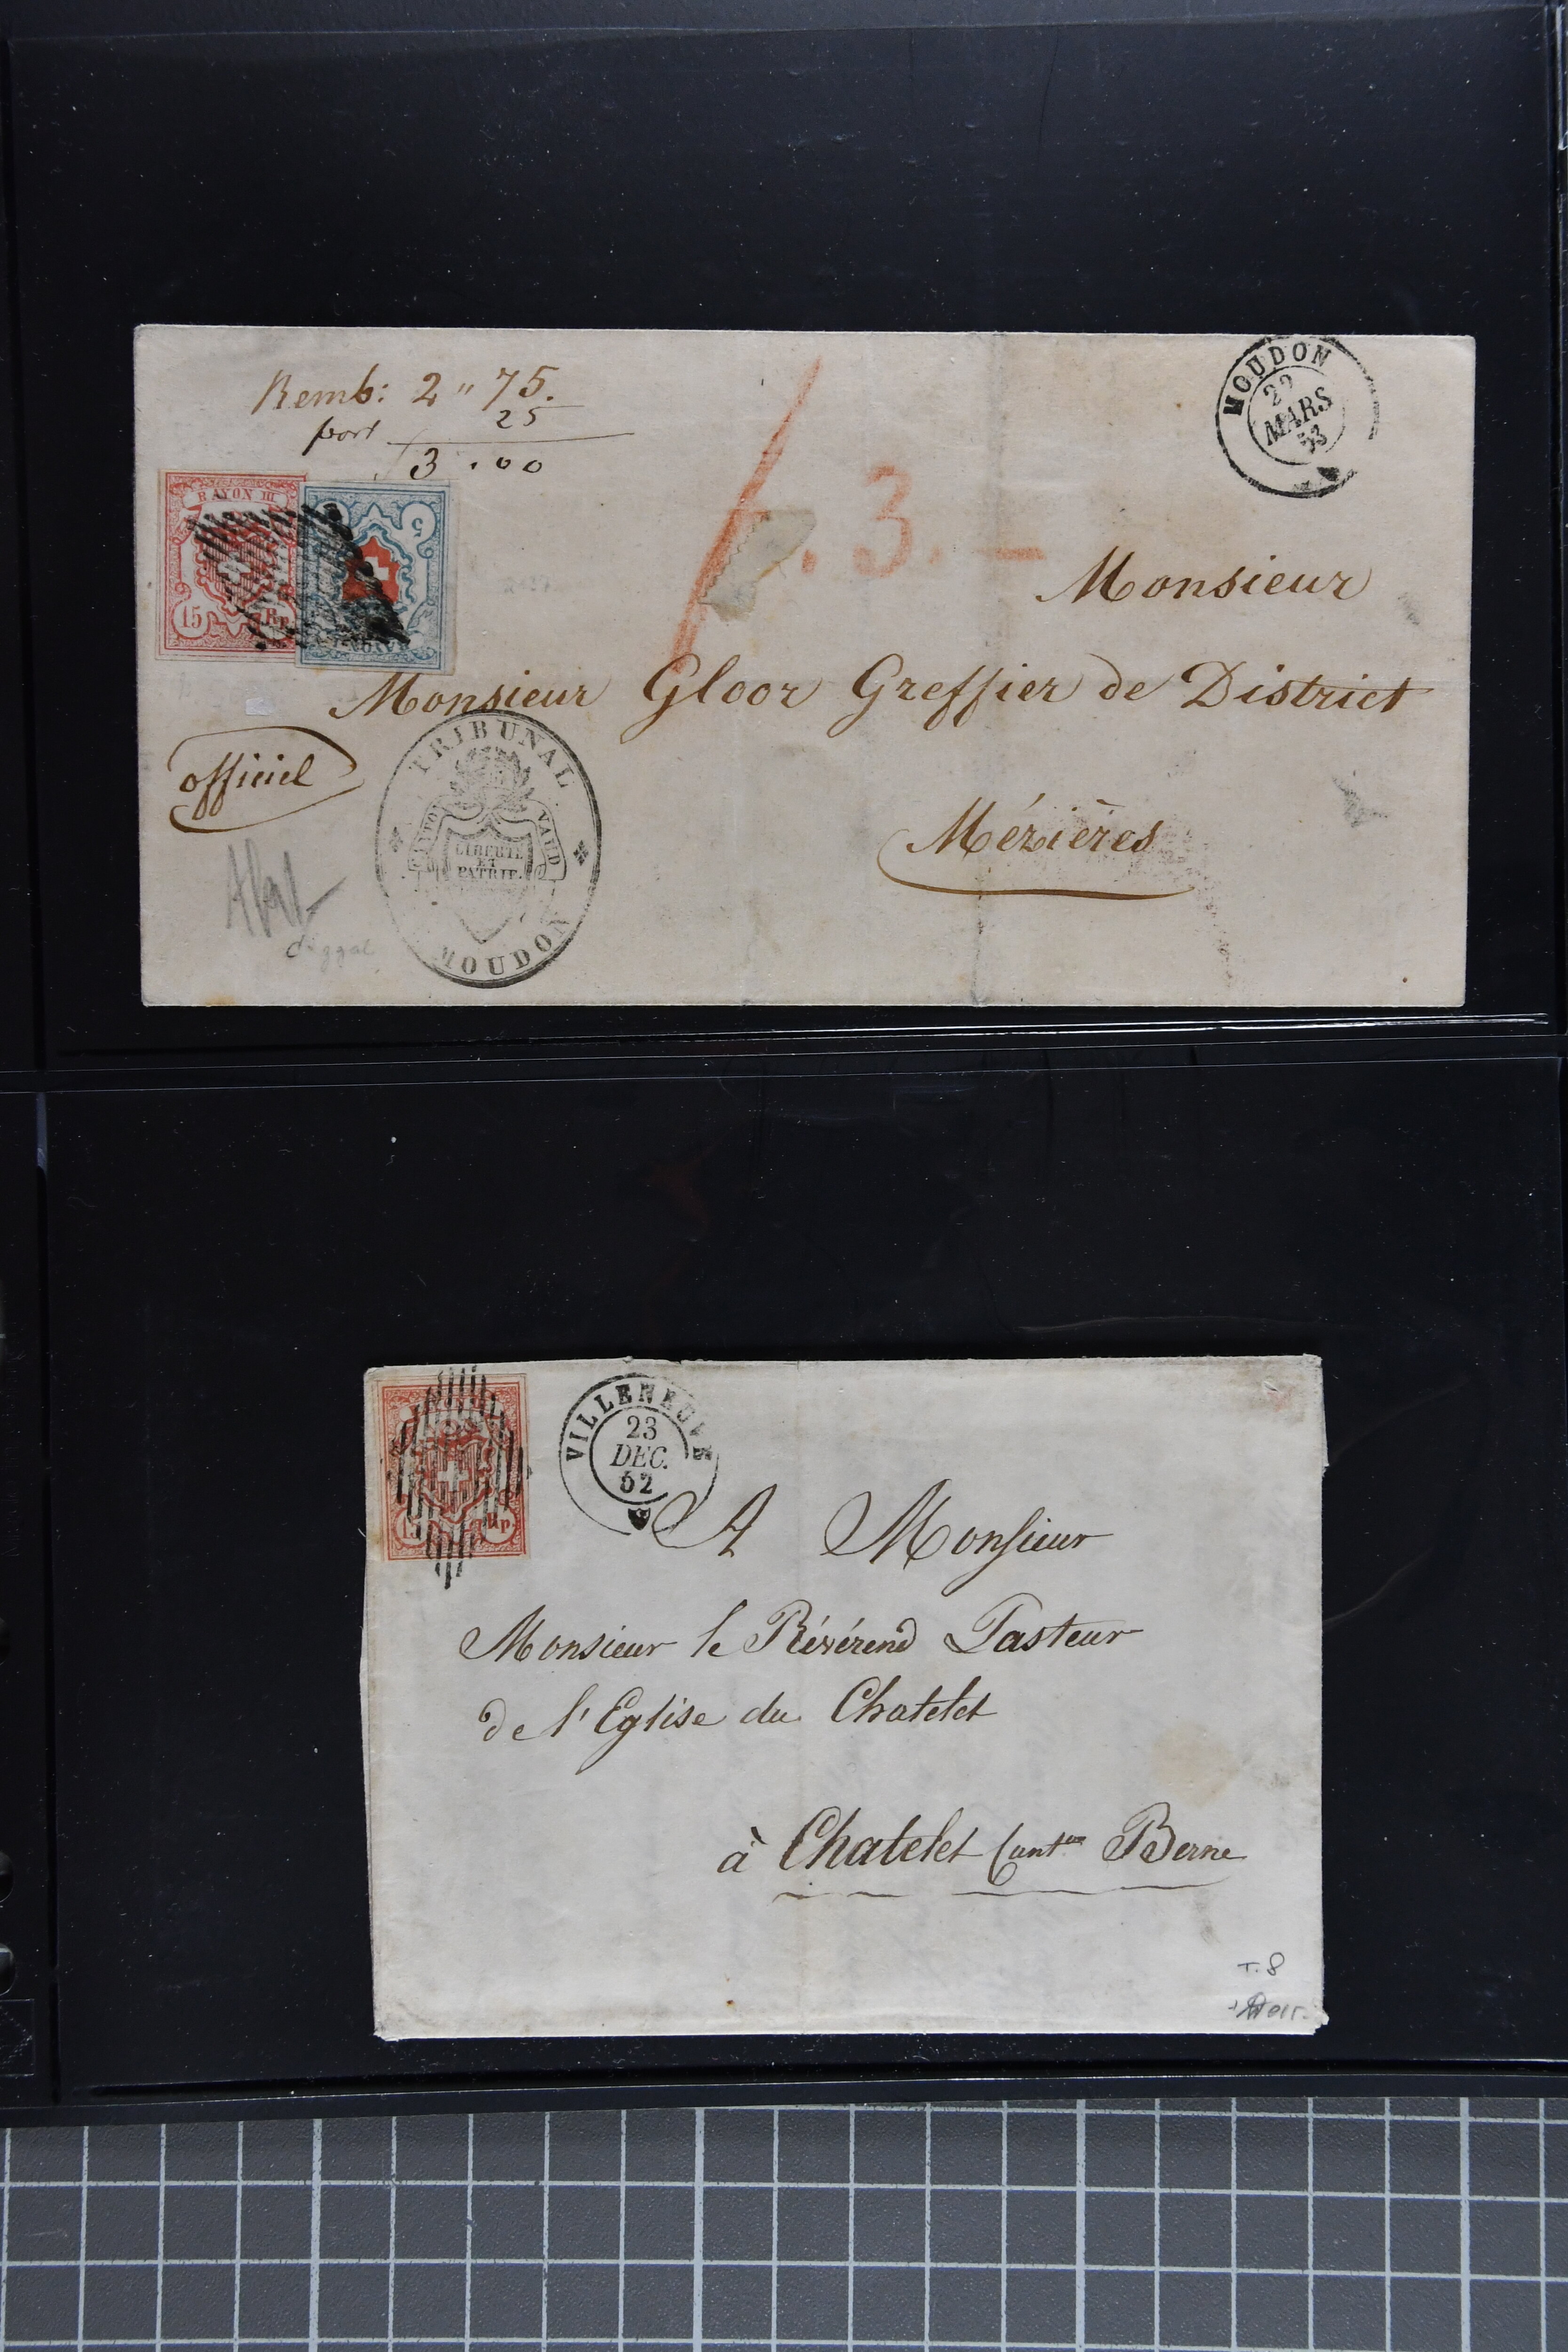 Remb: 2 " 75.
port 25
3.00
MOUDON
MARS
53
RAYON III
15 Rp.
5
RAYON I
. 3. —
Monsieur
Monsieur Gloor Greffier de District
officiel
Mézières
TRIBUNAL
CANTON VAUD
LIBERTE
ET
PATRIE.
MOUDON
VILLENEUVE
23
DEC.
52
15 Rp.
A Monsieur
Monsieur le Révérend Pasteur
de l'Eglise du Chatelet
à Chatelet Canton Berne
T.8